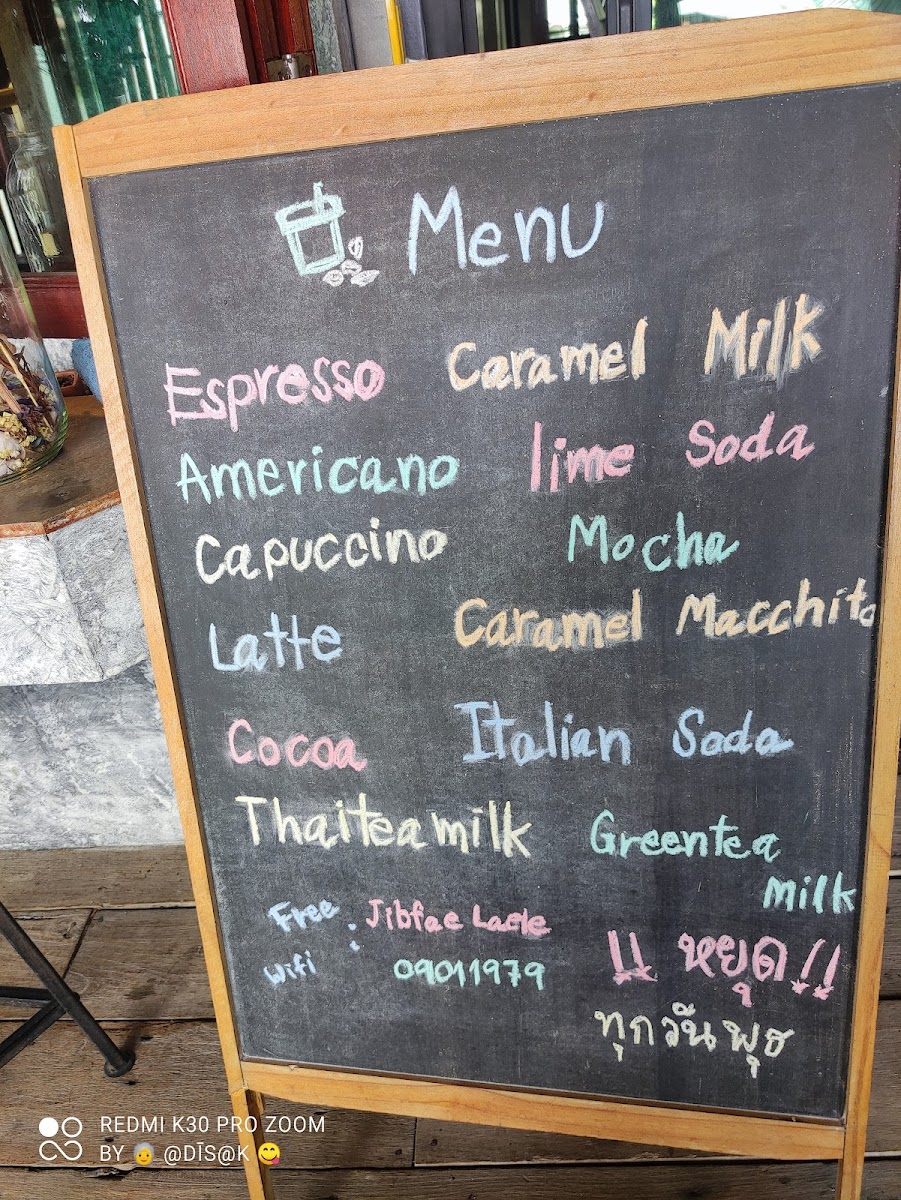 Menu
Espresso Caramel Milk
Americano lime Soda
Capuccino Mocha
Latte Caramel Macchito
Cocoa Italian Soda
Thaiteamilk Greentea
milk
Free : Jibfae Laele
Wifi 09011979
!! หยุด!!
ทุกวันพุธ
REDMI K30 PRO ZOOM
BY 👵 @DĪS@K 😋